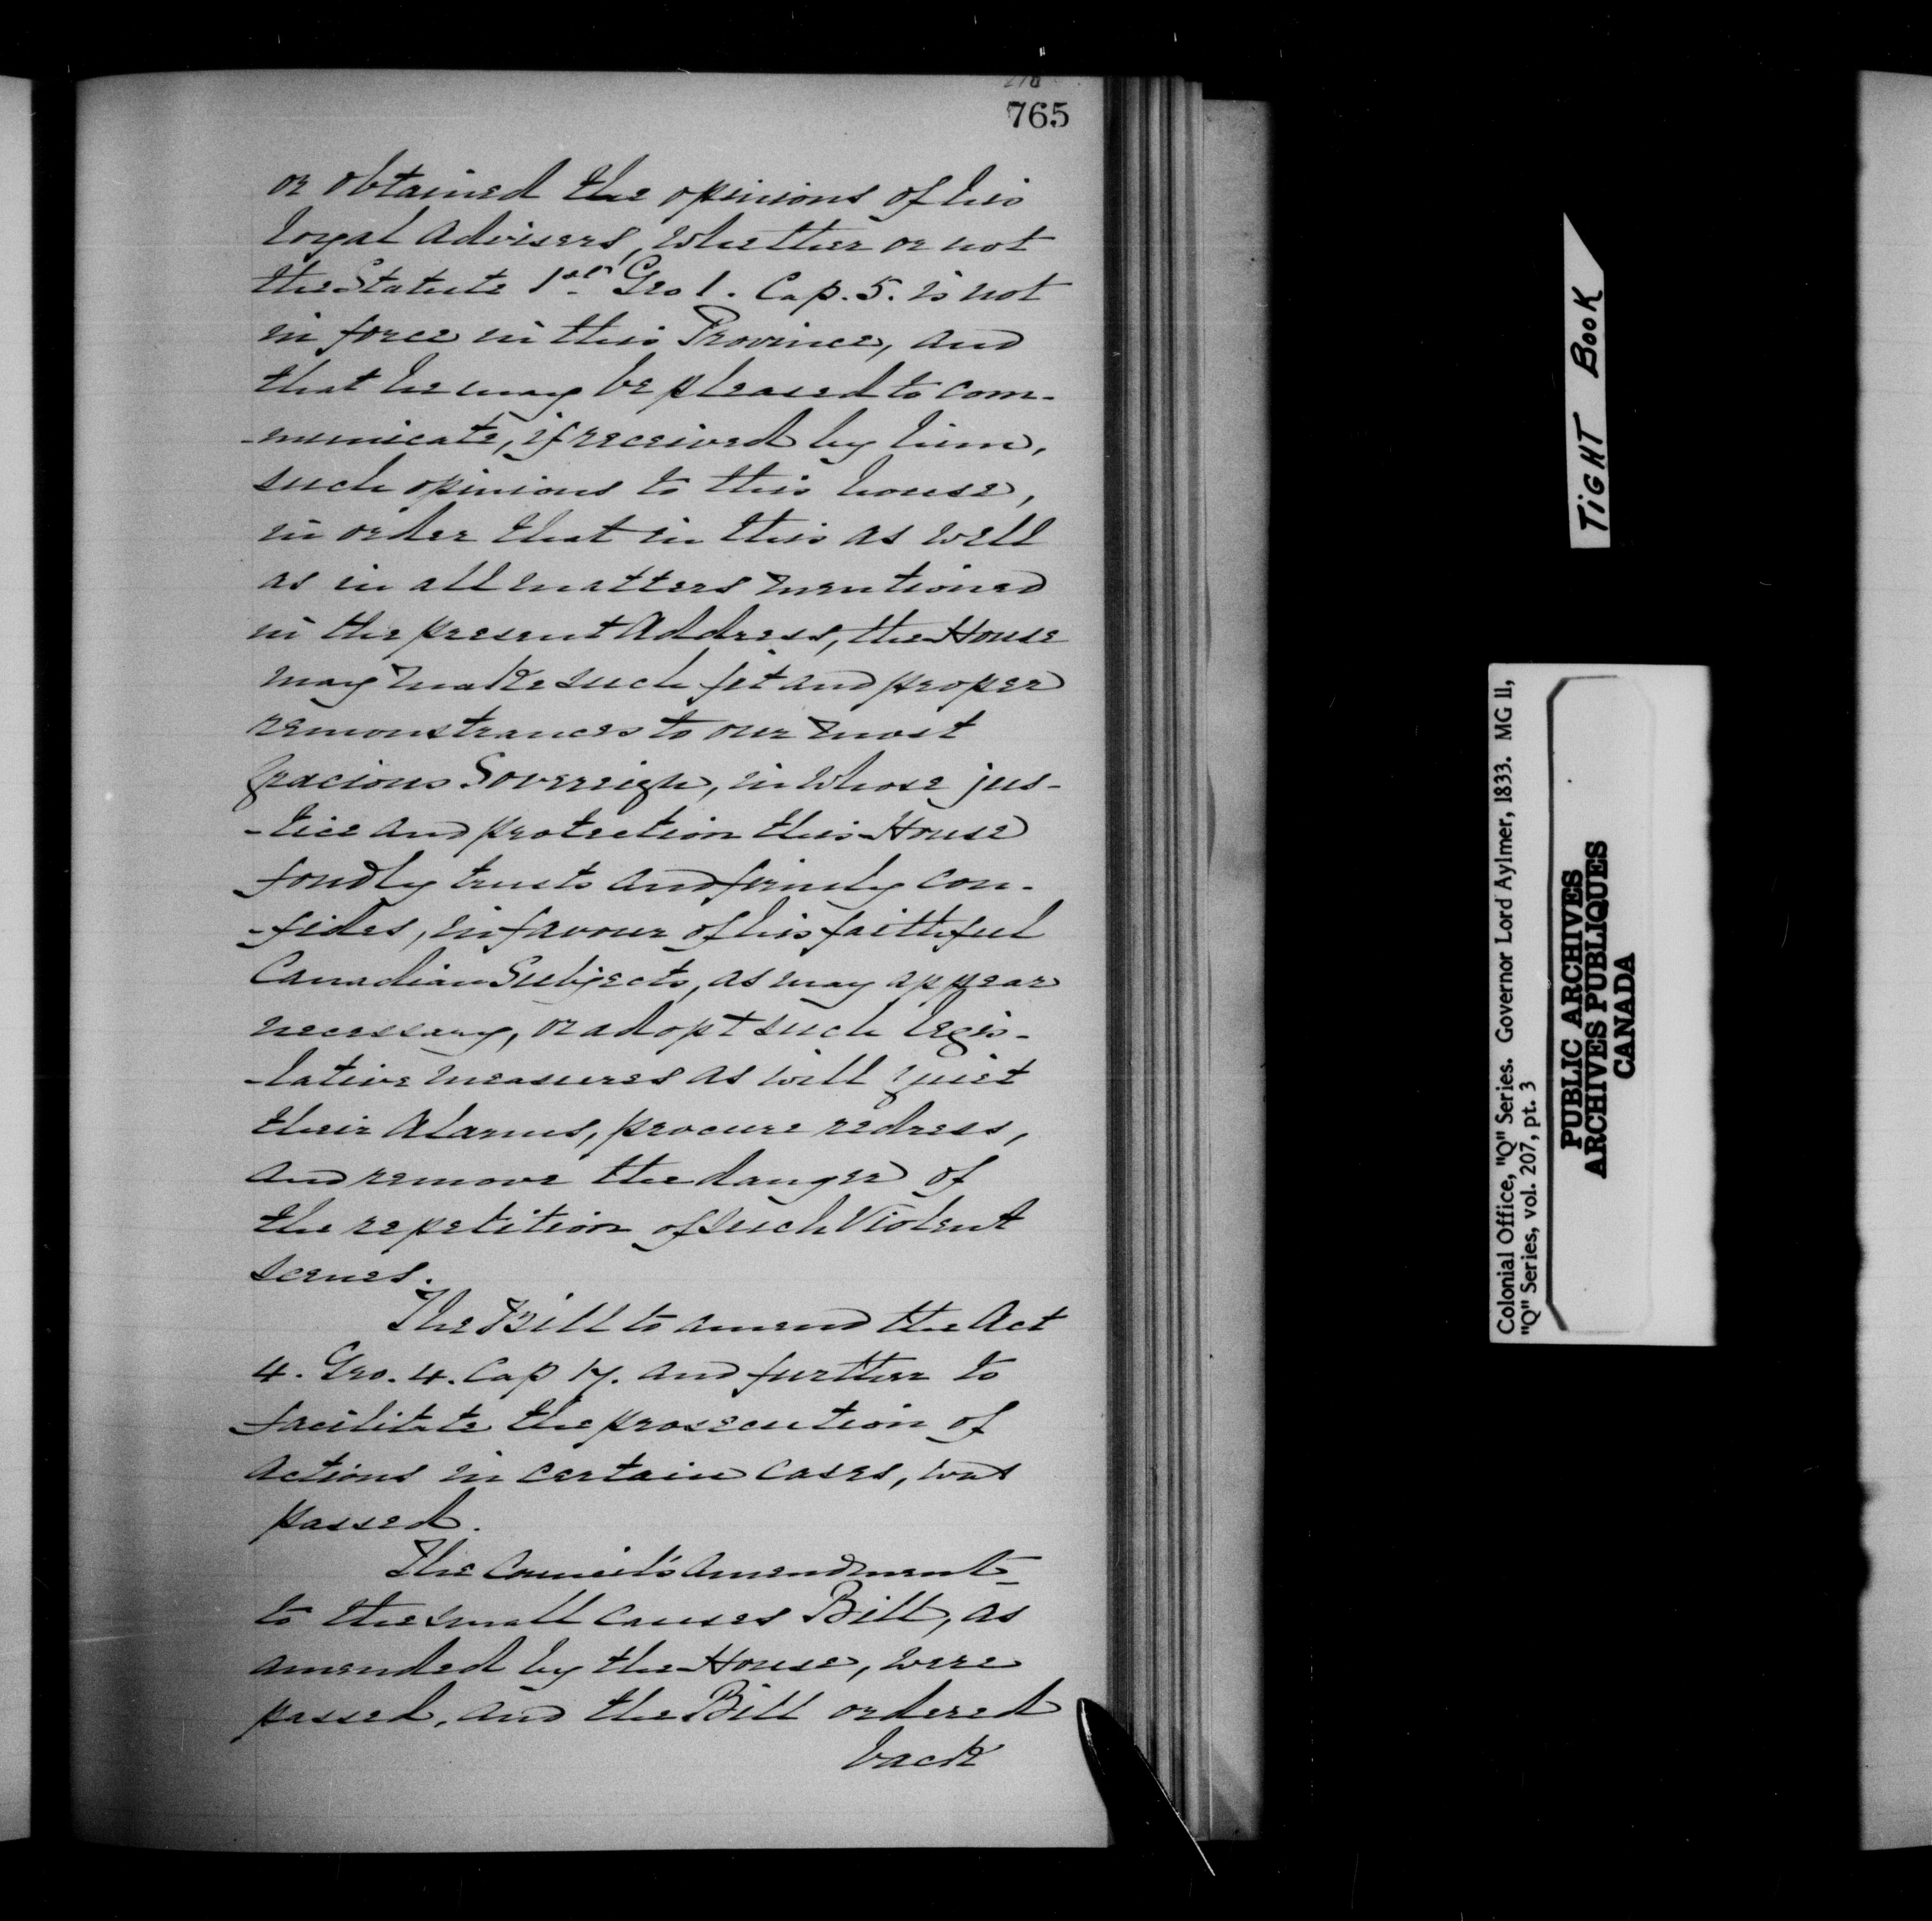 765
or obtained the opinions of his
loyal advisers, whether or not
the Statute 1st Geo 1. Cap. 5. is not
in force in this Province, and
that he may be pleased to com-
-municate, if received by him,
such opinions to this house,
in order that in this as well
as in all matters mentioned
in the present Address, the House
may make such fit and proper
remonstrances to our most
gracious Sovereign, in whose jus-
-tice and protection this House
fondly trusts and firmly con-
-fides, in favour of his faithful
Canadian Subjects, as may appear
necessary, or adopt such legis-
-lative measures as will quiet
their alarms, procure redress,
and remove the danger of
the repetition of such violent
scenes.
The Bill to amend the Act
4. Geo. 4. Cap 17. and further to
facilitate the prosecution of
actions in certain cases, was
passed.
The Council's amendments
to the small causes Bill, as
amended by the House, were
passed, and the Bill ordered
back
TIGHT BOOK
Colonial Office, "Q" Series. Governor Lord Aylmer, 1833. MG 11,
"Q" Series, vol. 207, pt. 3
PUBLIC ARCHIVES
ARCHIVES PUBLIQUES
CANADA